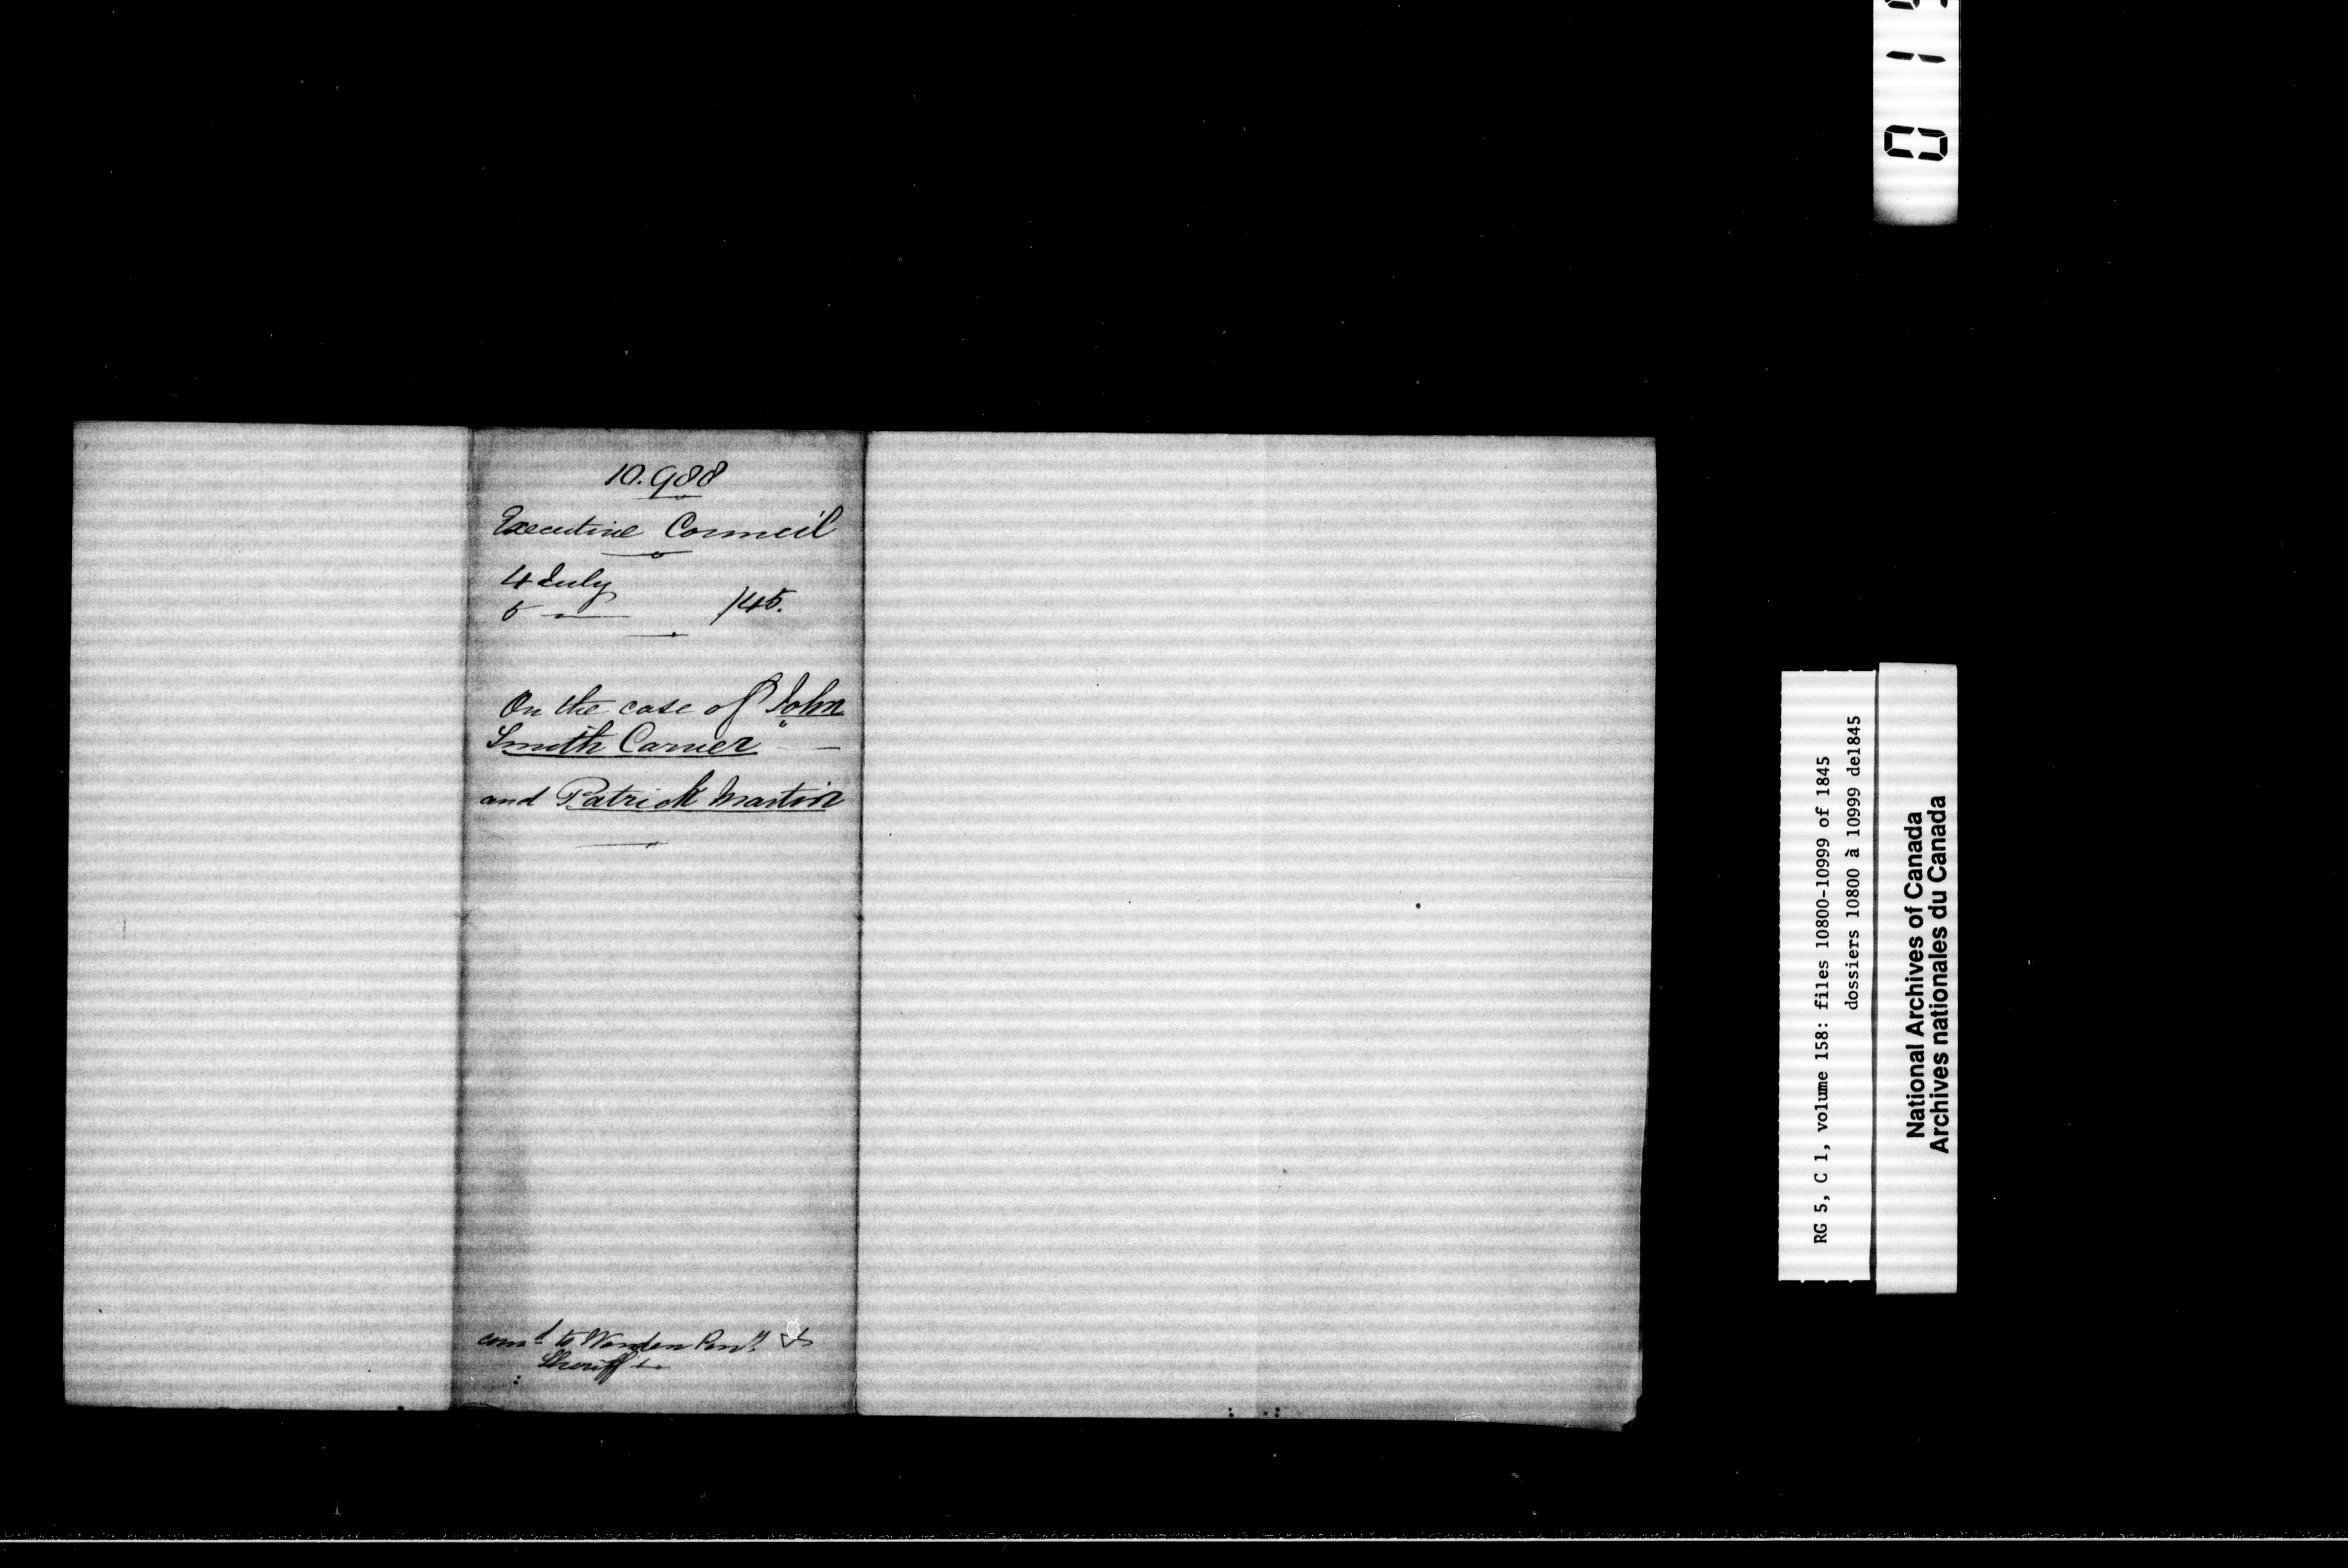 10.988
Executive Council
4 July
5 — /45.
On the case of John
Smith Carver
and Patrick Martin
comd to Warden Peny &
Sheriff
RG 5, C 1, volume 158: files 10800-10999 of 1845
dossiers 10800 à 10999 de1845
National Archives of Canada
Archives nationales du Canada
0 1